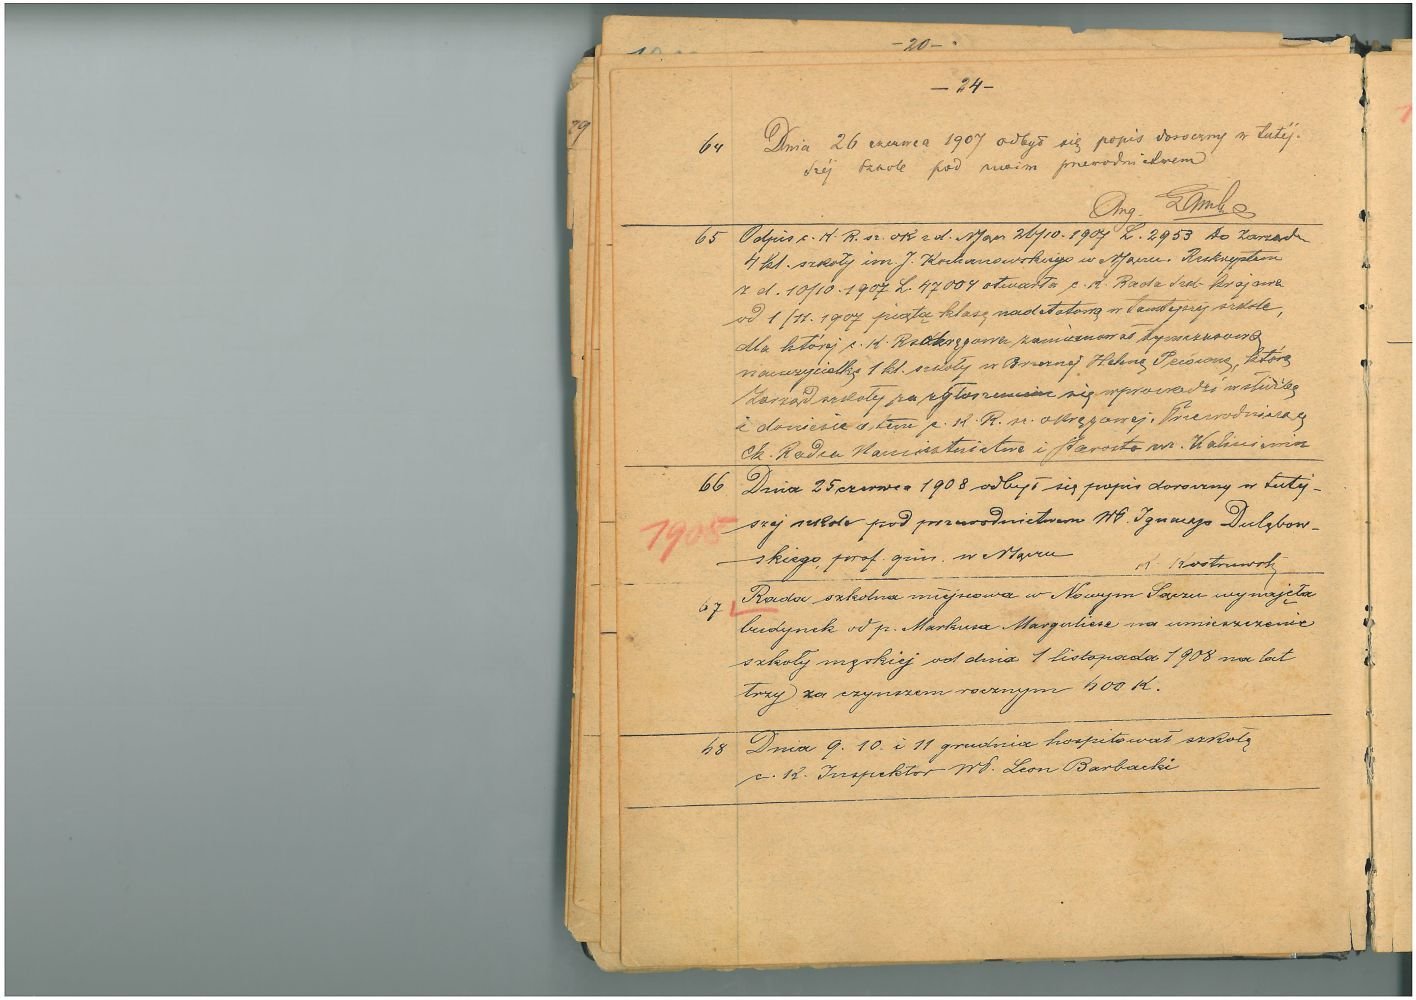 - 20 -
29
- 24 -
64 Dnia 26 czerwca 1907 odbył się popis doroczny w tutej-
széj szkole pod moim przewodnictwem
Aug.
65 Odpis c. K. R. sz. ok z d. 26/10. 1907 L. 2953 Do Zarządu
4 kl. szkoły im J. Kochanowskiego w N. Sączu. Reskryptem
z d. 10/10. 1907 L. 47004 otwarła c. K. Rada szk. krajowa
od 1/11. 1907 piątą klasę nadetatową w tamtejszej szkole,
dla której c. K. R. okręgowa zamianowała tymczasową
nauczycielkę 1 kl. szkoły w Helenę którą
Zarząd szkoły za zgłoszeniem się wprowadzi w służbę
i doniesie o tem c. K. R. sz. okręgowej. Przewodniczący
Ck. Radca Namiestnictwa i Starosta
66 Dnia 25 czerwca 1908 odbył się popis doroczny w tutej-
1908 szej szkole pod przewodnictwem WP. Ignacego Dulębow-
skiego, prof. gim. w N. Sączu
K.
67 Rada szkolna miejscowa w Nowym Sączu wynajęła
budynek od p. Markusa Marguliesa na umieszczenie
szkoły męskiej od dnia 1 listopada 1908 na lat
trzy za czynszem rocznym 400 K.
68 Dnia 9. 10. i 11 grudnia hospitował szkołę
c. K. Inspektor WP. Leon Barbacki